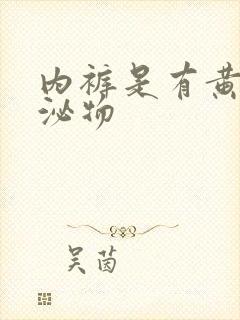 内裤是有黄
泌物
吴茵